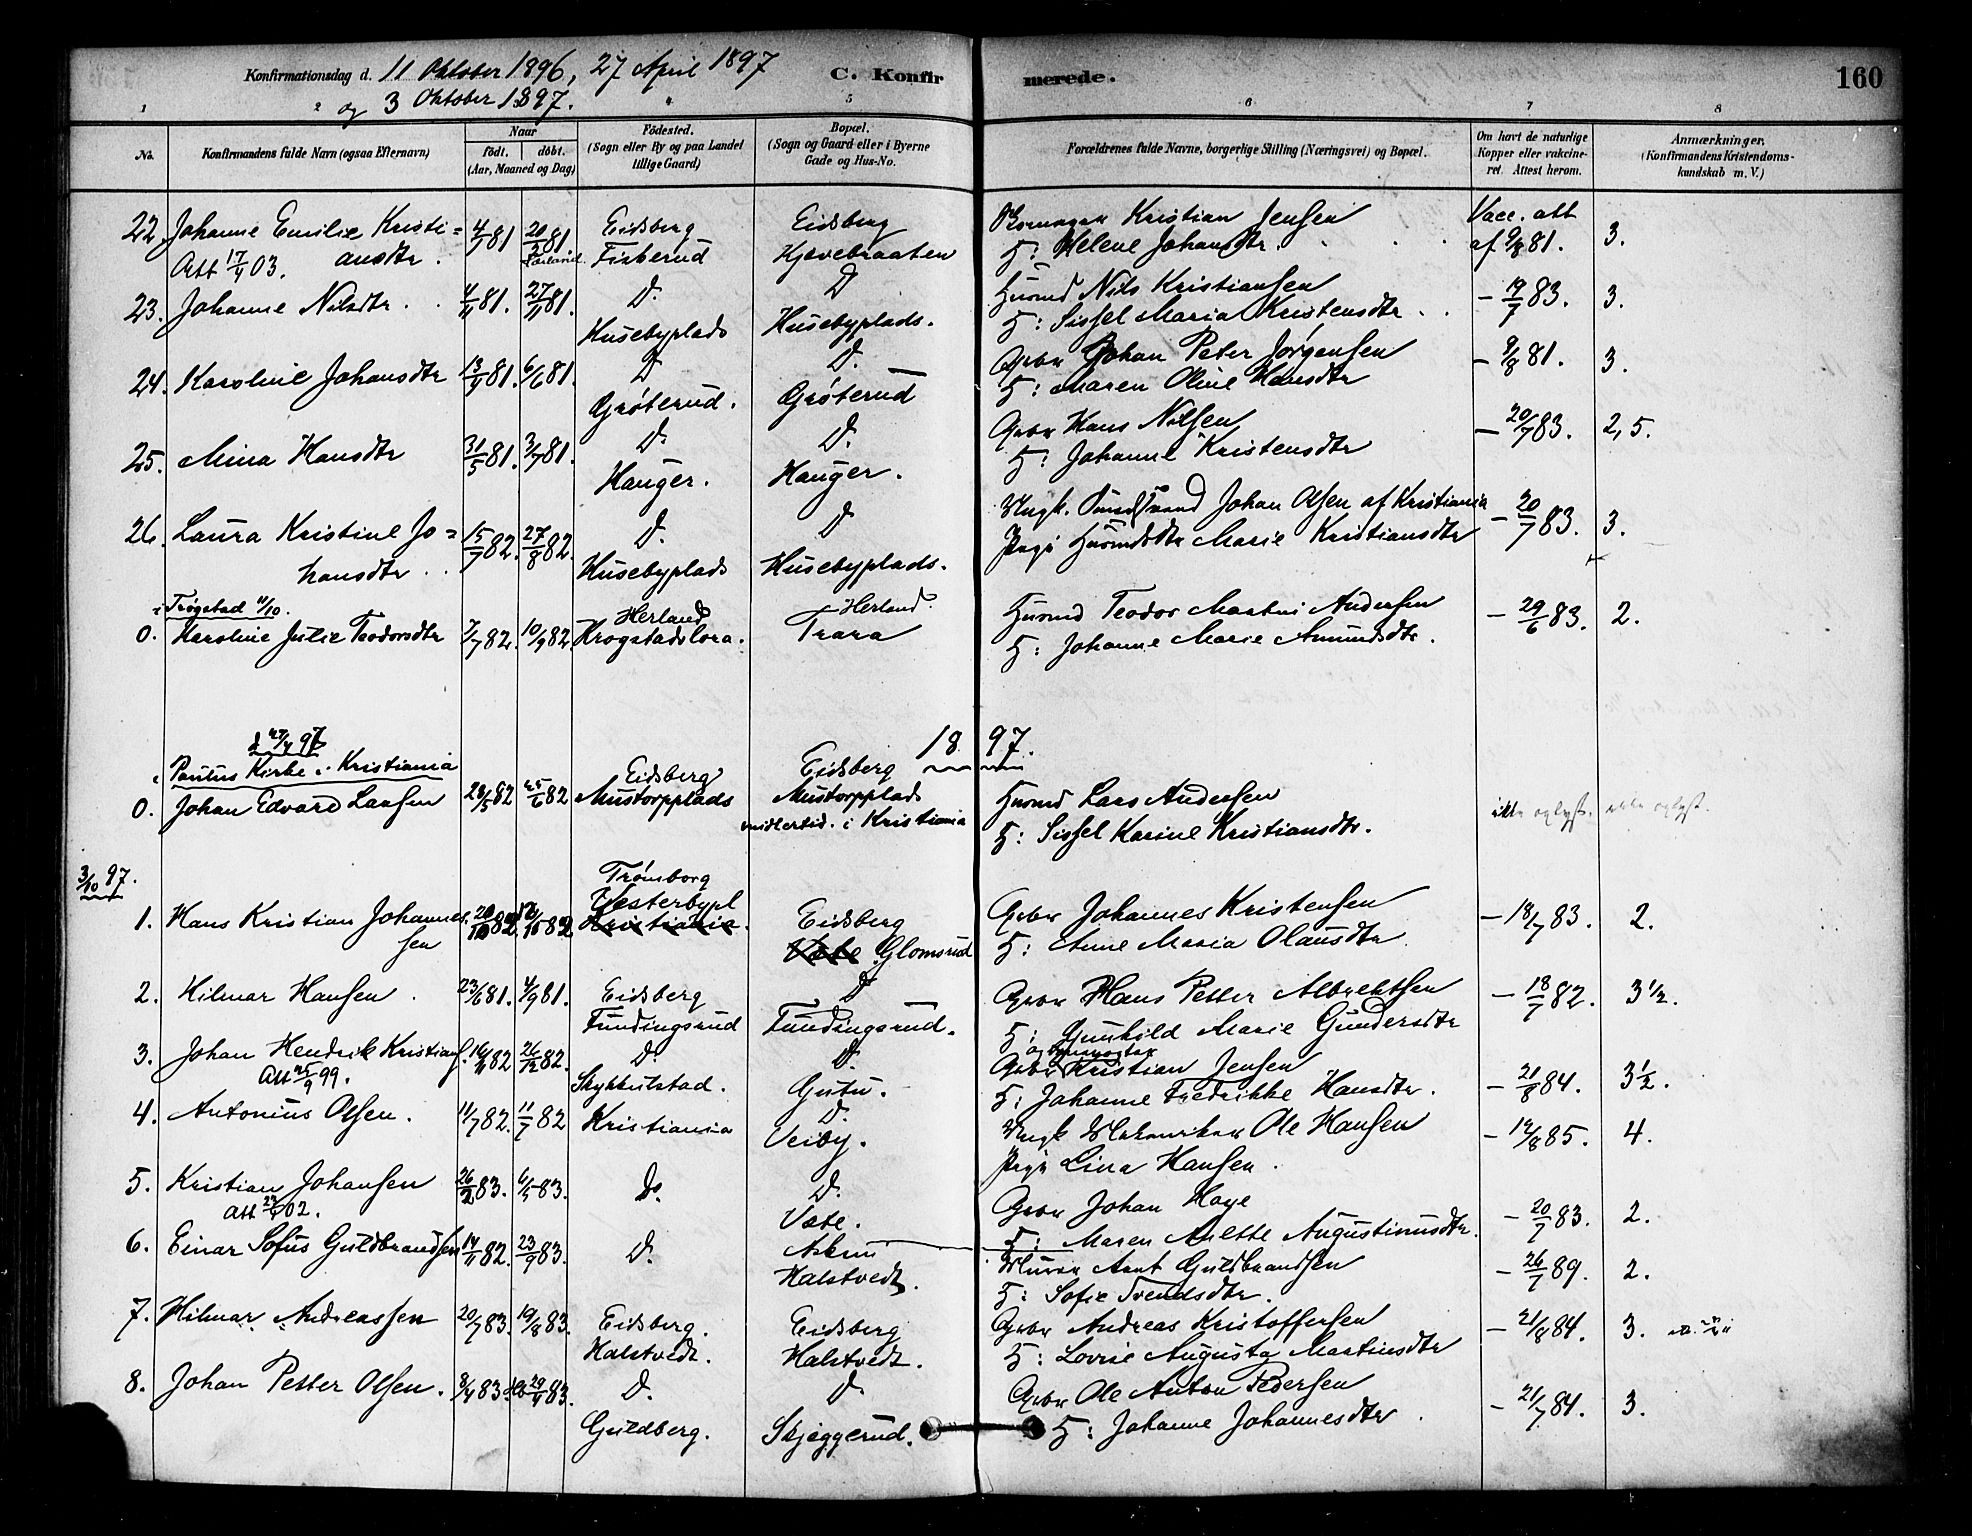 Konfirmationsdag d. 11 Oktober 1896, 27 April 1897
og 3 Oktober 1897.
C. Konfirmerede.
160
1 2 5 6 7 8
No.
Konfirmandens fulde Navn (ogsaa Efternavn)
Naar
födt. döbt.
(Aar, Maaned og Dag)
Födested.
(Sogn eller By og paa Landet
tillige Gaard)
Bopæl.
(Sogn og Gaard eller i Byerne
Gade og Hus-No.
Forældrenes fulde Navne, borgerlige Stilling (Næringsvei) og Bopæl.
Om havt de naturlige
Kopper eller vakcine-
ret. Attest herom.
Anmærkninger.
(Konfirmandens Kristendoms-
kundskab m. V.)
22. Johanne Emilie Kristi= 4/7 81 20/3 81. Eidsberg Eidsberg Kristian Jensen Vacc. att
Att 17/4 03. ansdtr. Fiskerud Kjævebraaten H: Helene Johansdtr. af 9/8 81. 3.
23. Johanne Nilsdtr. 4/11 81. 27/11 81. D. D Husmd Nils Kristiansen – 19/7 83. 3.
Husebyplads Husebyplads. H: Sissel Maria Kristensdtr.
24. Karoline Johansdtr 13/4 81. 6/6 81. D D. Gbr Johan Peter Jørgensen – 9/8 81. 3.
Grøterud. Grøterud H: Maren Oline Hansdtr
25. Mina Hansdtr 31/5 81. 3/7 81. D. D. Gbr Hans Nilsen – 20/7 83. 2,5.
Hauger. Hauger. H: Johanne Kristensdtr
26. Laura Kristine Jo= 15/7 82. 27/8 82. D. D Ungk. Johan Olsen af Kristiania – 20/7 83. 3.
hansdtr. Husebyplads Husebyplads. Pige Husmdsdtr Marie Kristiansdtr
i Trøgstad 11/10. Herland Herland.
0. Karoline Julie Teodorsdtr 7/7 82. 10/9 82. Krogstadslora. Trara Husmd Teodor Martin Andersen – 29/6 83. 2.
H: Johanne Marie Amundsdtr.
1897.
d 27/4 97
i Paulus Kirke i Kristiania Eidsberg Eidsberg
0. Johan Edvard Larsen 28/5 82 25/6 82 Mustorpplads Mustorpplads Husmd Lars Andersen ikke oplyst. ikke oplyst.
midlertid. i Kristiania H: Sissel Karine Kristiansdtr.
3/10 97.
Trømborg
Vesterbypl
1. Hans Kristian Johannes- 82. 82 Kristiania. Eidsberg Gbr Johannes Kristensen – 18/7 83. 2.
sen Glomsrud H: Anne Maria Olausdtr
2. Hilmar Hansen. 23/6 81. 4/9 81. Eidsberg D Gbr Hans Petter Albrektsen – 18/7 82. 3 1/2.
Fundingsrud Fundingsrud. H: Gunhild Marie Gundersdtr
3. Johan Hendrik Kristians. 16/11 82 26/12 82. D. D. Gbr Kristian Jensen – 21/8 84. 3 1/2.
Att 25/9 99. Skykkulstad. Gutu. H: Johanne Fredrikke Hansdtr.
4. Antonius Olsen. 11/7 82. 11/7 82 Kristiania D. Ungk Ole Hansen – 12/8 85. 4.
Veiby. Pige Lina Hansen.
5. Kristian Johansen 26/2 83. 6/5 83. D. D. Gbr Johan Haye – 20/7 83. 2.
Att 02. Væte. H: Maren Anette Augustinusdtr.
6. Einar Sofus Guldbrandsen 14/11 82. 23/9 83. D. Askim Murer Arnt Guldbrandsen – 26/7 89. 2.
Halstvedt. H: Sofie Svendsdtr.
7. Hilmar Andreassen 20/7 83. 19/8 83. Eidsberg. Eidsberg Gbr Andreas Kristoffersen – 21/8 84. 3.
Halstvedt. Halstvedt. H: Lovise Augusta Martinsdtr
8. Johan Petter Olsen. 8/4 83. 29/4 83. D. D Gbr Ole Anton Pedersen – 21/7 84. 3.
Guldberg. Skjeggerud. H: Johanne Johannesdtr